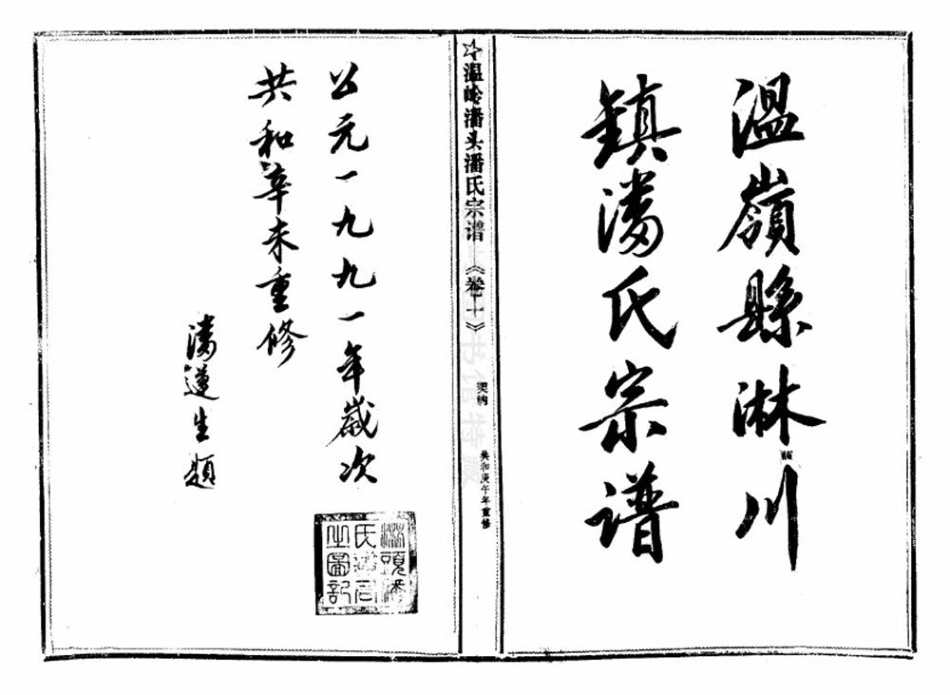 温嶺縣淋川
鎮潘氏宗谱
☆温岭潘头潘氏宗谱《卷二》
共和庚午年重修
书馆特藏
公元一九九一年歲次
共和辛未重修
潘蓮生題
之圖記